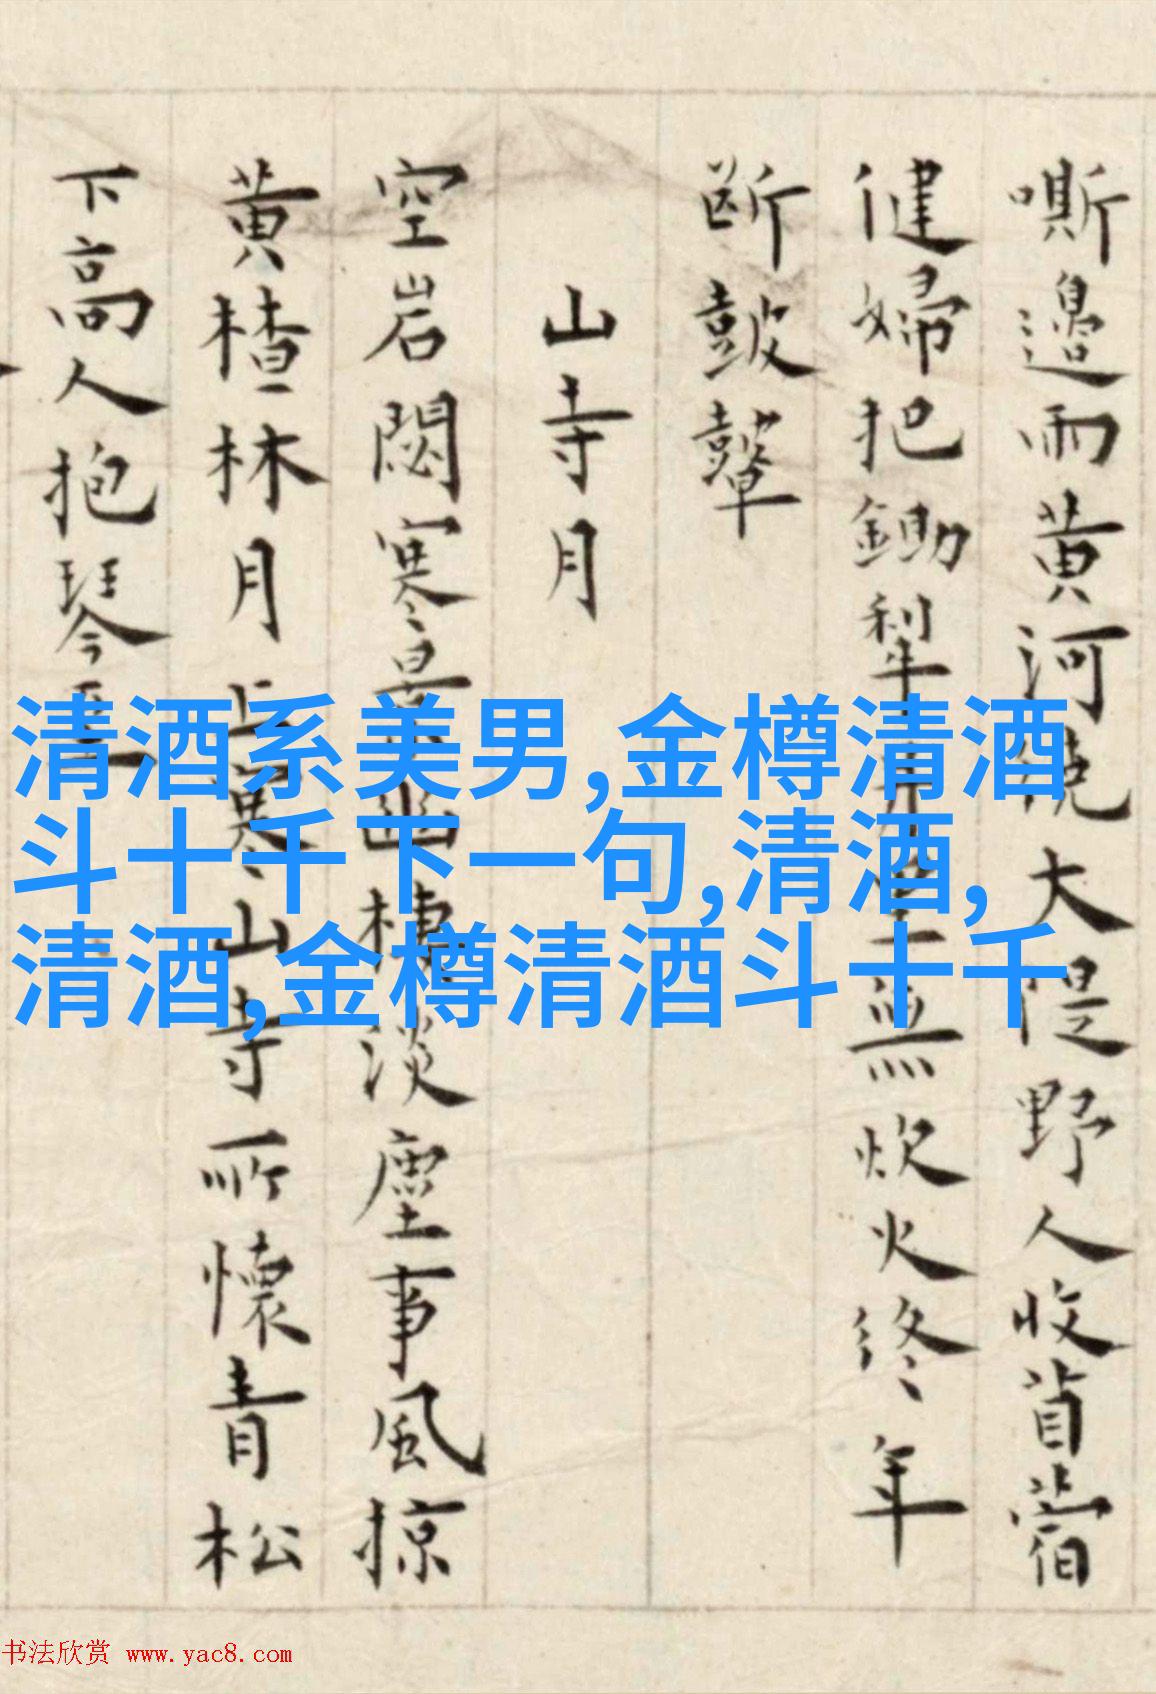 嘶邊雨黄河繞大隄野人收苜蓿
健婦把鋤犁無炊火終年
斷鼓鼙
山寺月
空岩閟寒棲淡塵事風掠
黄楂林月上寒山寺所懷青松
下高人抱琴
清酒系美男,金樽清酒
斗十千下一句,清酒,
清酒,金樽清酒斗十千
书法欣赏 www.yac8.com